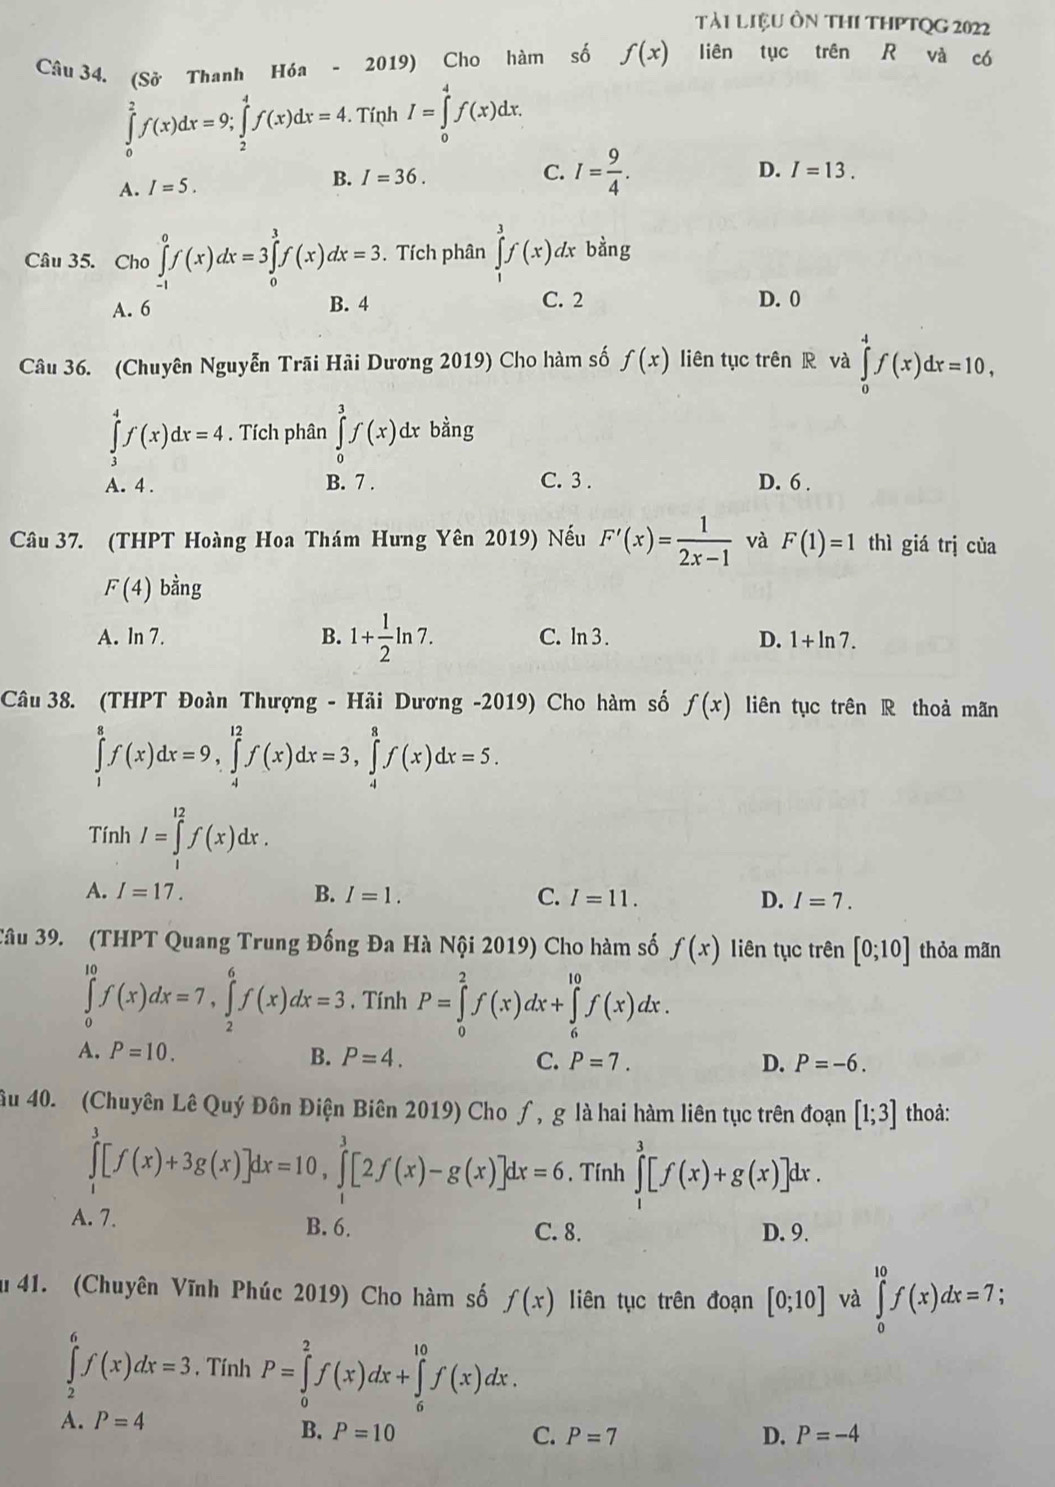 TÀI LIỆU ÔN THI THPTQG 2022
Câu 34. (Sở Thanh Hóa - 2019) Cho hàm số f(x) liên tục trên R và có
∫₀² f(x)dx = 9; ∫₂⁴ f(x)dx = 4. Tính I = ∫₀⁴ f(x)dx.
A. I = 5. B. I = 36. C. I = 9/4. D. I = 13.
Câu 35. Cho ∫₋₁⁰ f(x)dx = 3∫₀³ f(x)dx = 3. Tích phân ∫₁³ f(x)dx bằng
A. 6 B. 4 C. 2 D. 0
Câu 36. (Chuyên Nguyễn Trãi Hải Dương 2019) Cho hàm số f(x) liên tục trên ℝ và ∫₀⁴ f(x)dx = 10,
∫₃⁴ f(x)dx = 4. Tích phân ∫₀³ f(x)dx bằng
A. 4. B. 7. C. 3. D. 6.
Câu 37. (THPT Hoàng Hoa Thám Hưng Yên 2019) Nếu F'(x) = 1/(2x−1) và F(1) = 1 thì giá trị của
F(4) bằng
A. ln 7. B. 1 + 1/2 ln 7. C. ln 3. D. 1 + ln 7.
Câu 38. (THPT Đoàn Thượng - Hải Dương -2019) Cho hàm số f(x) liên tục trên ℝ thoả mãn
∫₁⁸ f(x)dx = 9, ∫₄¹² f(x)dx = 3, ∫₄⁸ f(x)dx = 5.
Tính I = ∫₁¹² f(x)dx.
A. I = 17. B. I = 1. C. I = 11. D. I = 7.
Câu 39. (THPT Quang Trung Đống Đa Hà Nội 2019) Cho hàm số f(x) liên tục trên [0;10] thỏa mãn
∫₀¹⁰ f(x)dx = 7, ∫₂⁶ f(x)dx = 3. Tính P = ∫₀² f(x)dx + ∫₆¹⁰ f(x)dx.
A. P = 10. B. P = 4. C. P = 7. D. P = −6.
âu 40. (Chuyên Lê Quý Đôn Điện Biên 2019) Cho f, g là hai hàm liên tục trên đoạn [1;3] thoả:
∫₁³ [f(x)+3g(x)]dx = 10, ∫₁³ [2f(x)−g(x)]dx = 6. Tính ∫₁³ [f(x)+g(x)]dx.
A. 7. B. 6. C. 8. D. 9.
u 41. (Chuyên Vĩnh Phúc 2019) Cho hàm số f(x) liên tục trên đoạn [0;10] và ∫₀¹⁰ f(x)dx = 7;
∫₂⁶ f(x)dx = 3. Tính P = ∫₀² f(x)dx + ∫₆¹⁰ f(x)dx.
A. P = 4 B. P = 10 C. P = 7 D. P = −4